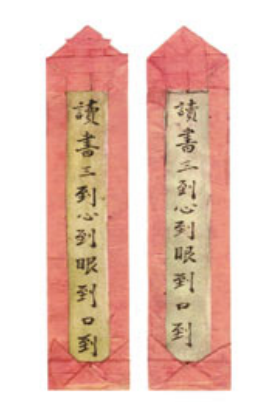 讀書三到心到眼到口到
讀書三到心到眼到口到